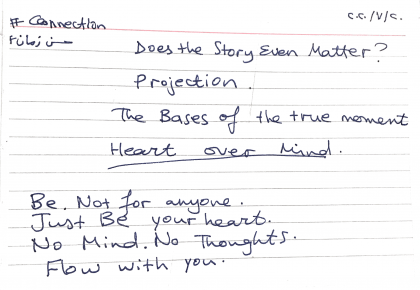 # Connection
c.c./V/c.
Does the Story Even Matter?
Projection.
The Bases of the true moment
Heart over Mind.
Be. Not for anyone.
Just Be your heart.
No Mind. No Thoughts.
Flow with you.